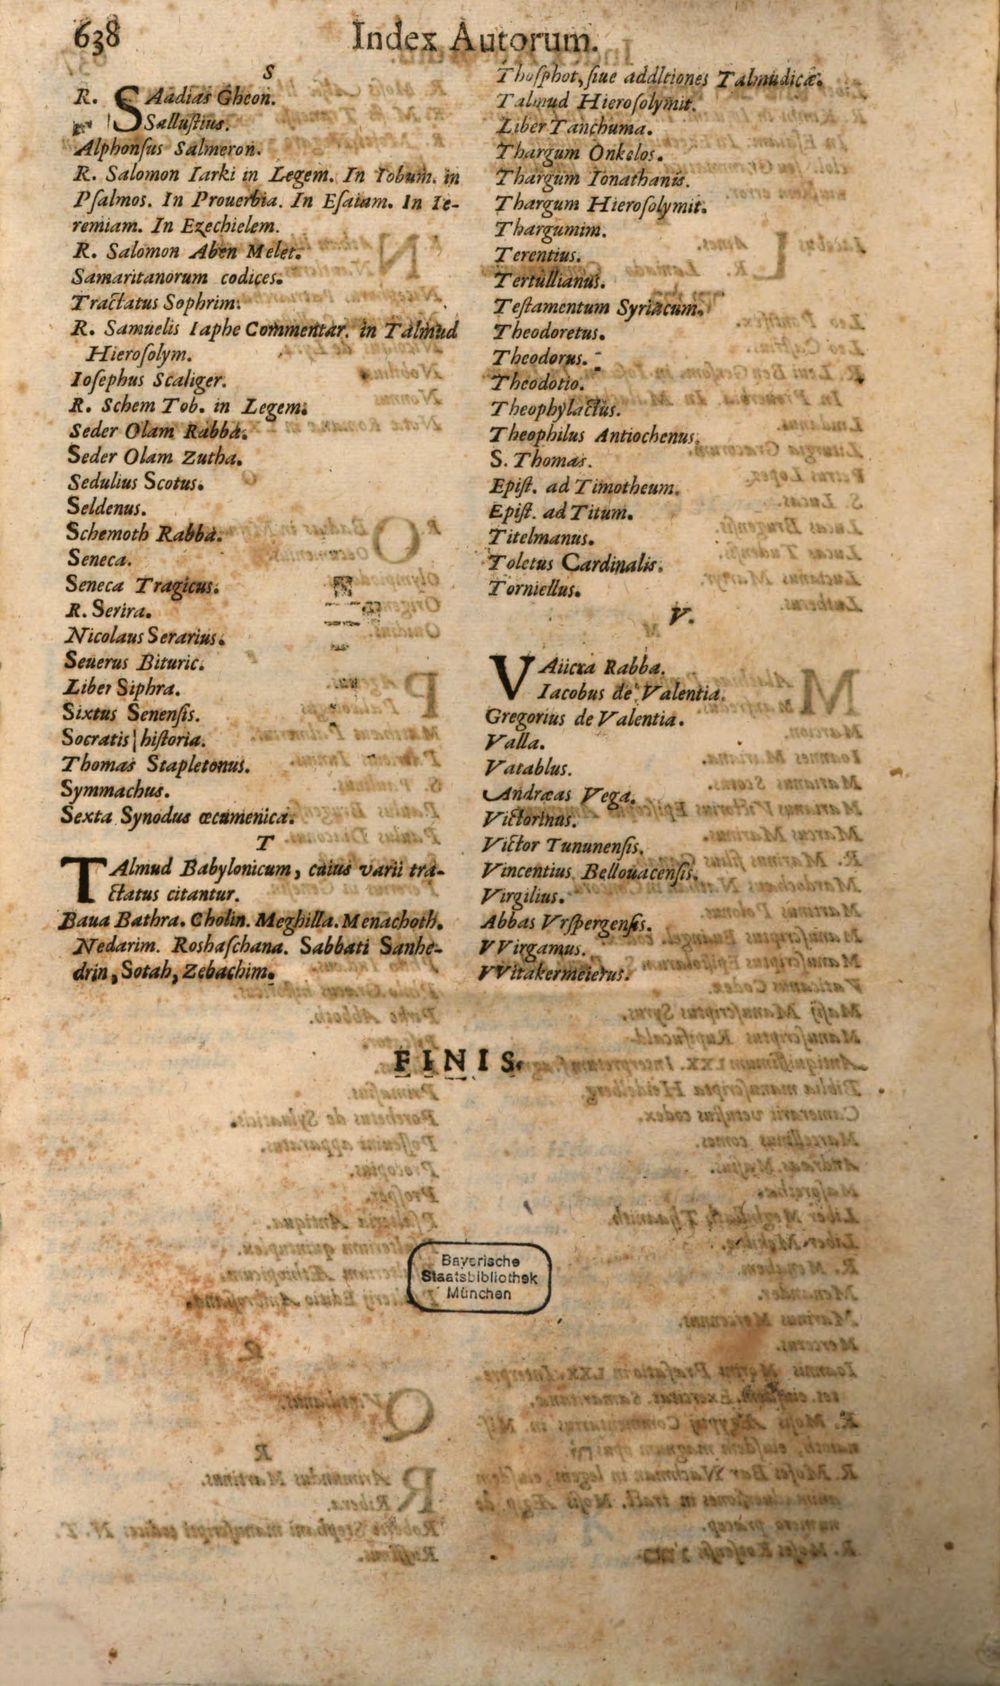 638
Index Autorum.
S
R. SAadias Gheon.
Salluſtius.
Alphonſus Salmeron.
R. Salomon Iarki in Legem. In Iobum. in
Pſalmos. In Prouerbia. In Eſaiam. In Ie-
remiam. In Ezechielem.
R. Salomon Aben Melet.
Samaritanorum codices.
Tractatus Sophrim.
R. Samuelis Iaphe Commentar. in Talmud
Hieroſolym.
Ioſephus Scaliger.
R. Schem Tob. in Legem.
Seder Olam Rabba.
Seder Olam Zutha.
Sedulius Scotus.
Seldenus.
Schemoth Rabba.
Seneca.
Seneca Tragicus.
R. Serira.
Nicolaus Serarius.
Seuerus Bituric.
Liber Siphra.
Sixtus Senenſis.
Socratis hiſtoria.
Thomas Stapletonus.
Symmachus.
Sexta Synodus œcumenica.
T
TAlmud Babylonicum, cuius varii tra-
ctatus citantur.
Baua Bathra. Cholin. Meghilla. Menachoth.
Nedarim. Roshaſchana. Sabbati Sanhe-
drin, Sotah, Zebachim.
Thoſphot, ſiue additiones Talmudicæ.
Talmud Hieroſolymit.
Liber Tanchuma.
Thargum Onkelos.
Thargum Ionathanis.
Thargum Hieroſolymit.
Thargumim.
Terentius.
Tertullianus.
Teſtamentum Syriacum.
Theodoretus.
Theodorus.
Theodotio.
Theophylactus.
Theophilus Antiochenus.
S. Thomas.
Epiſt. ad Timotheum.
Epiſt. ad Titum.
Titelmanus.
Toletus Cardinalis.
Torniellus.
V.
VAiicra Rabba.
Iacobus de Valentia.
Gregorius de Valentia.
Valla.
Vatablus.
Andræas Vega.
Victorinus.
Victor Tununenſis.
Vincentius Bellouacenſis.
Virgilius.
Abbas Vrſpergenſis.
VVirgamus.
VVitakermeierus.
FINIS.
Bayerische
Staatsbibliothek
München